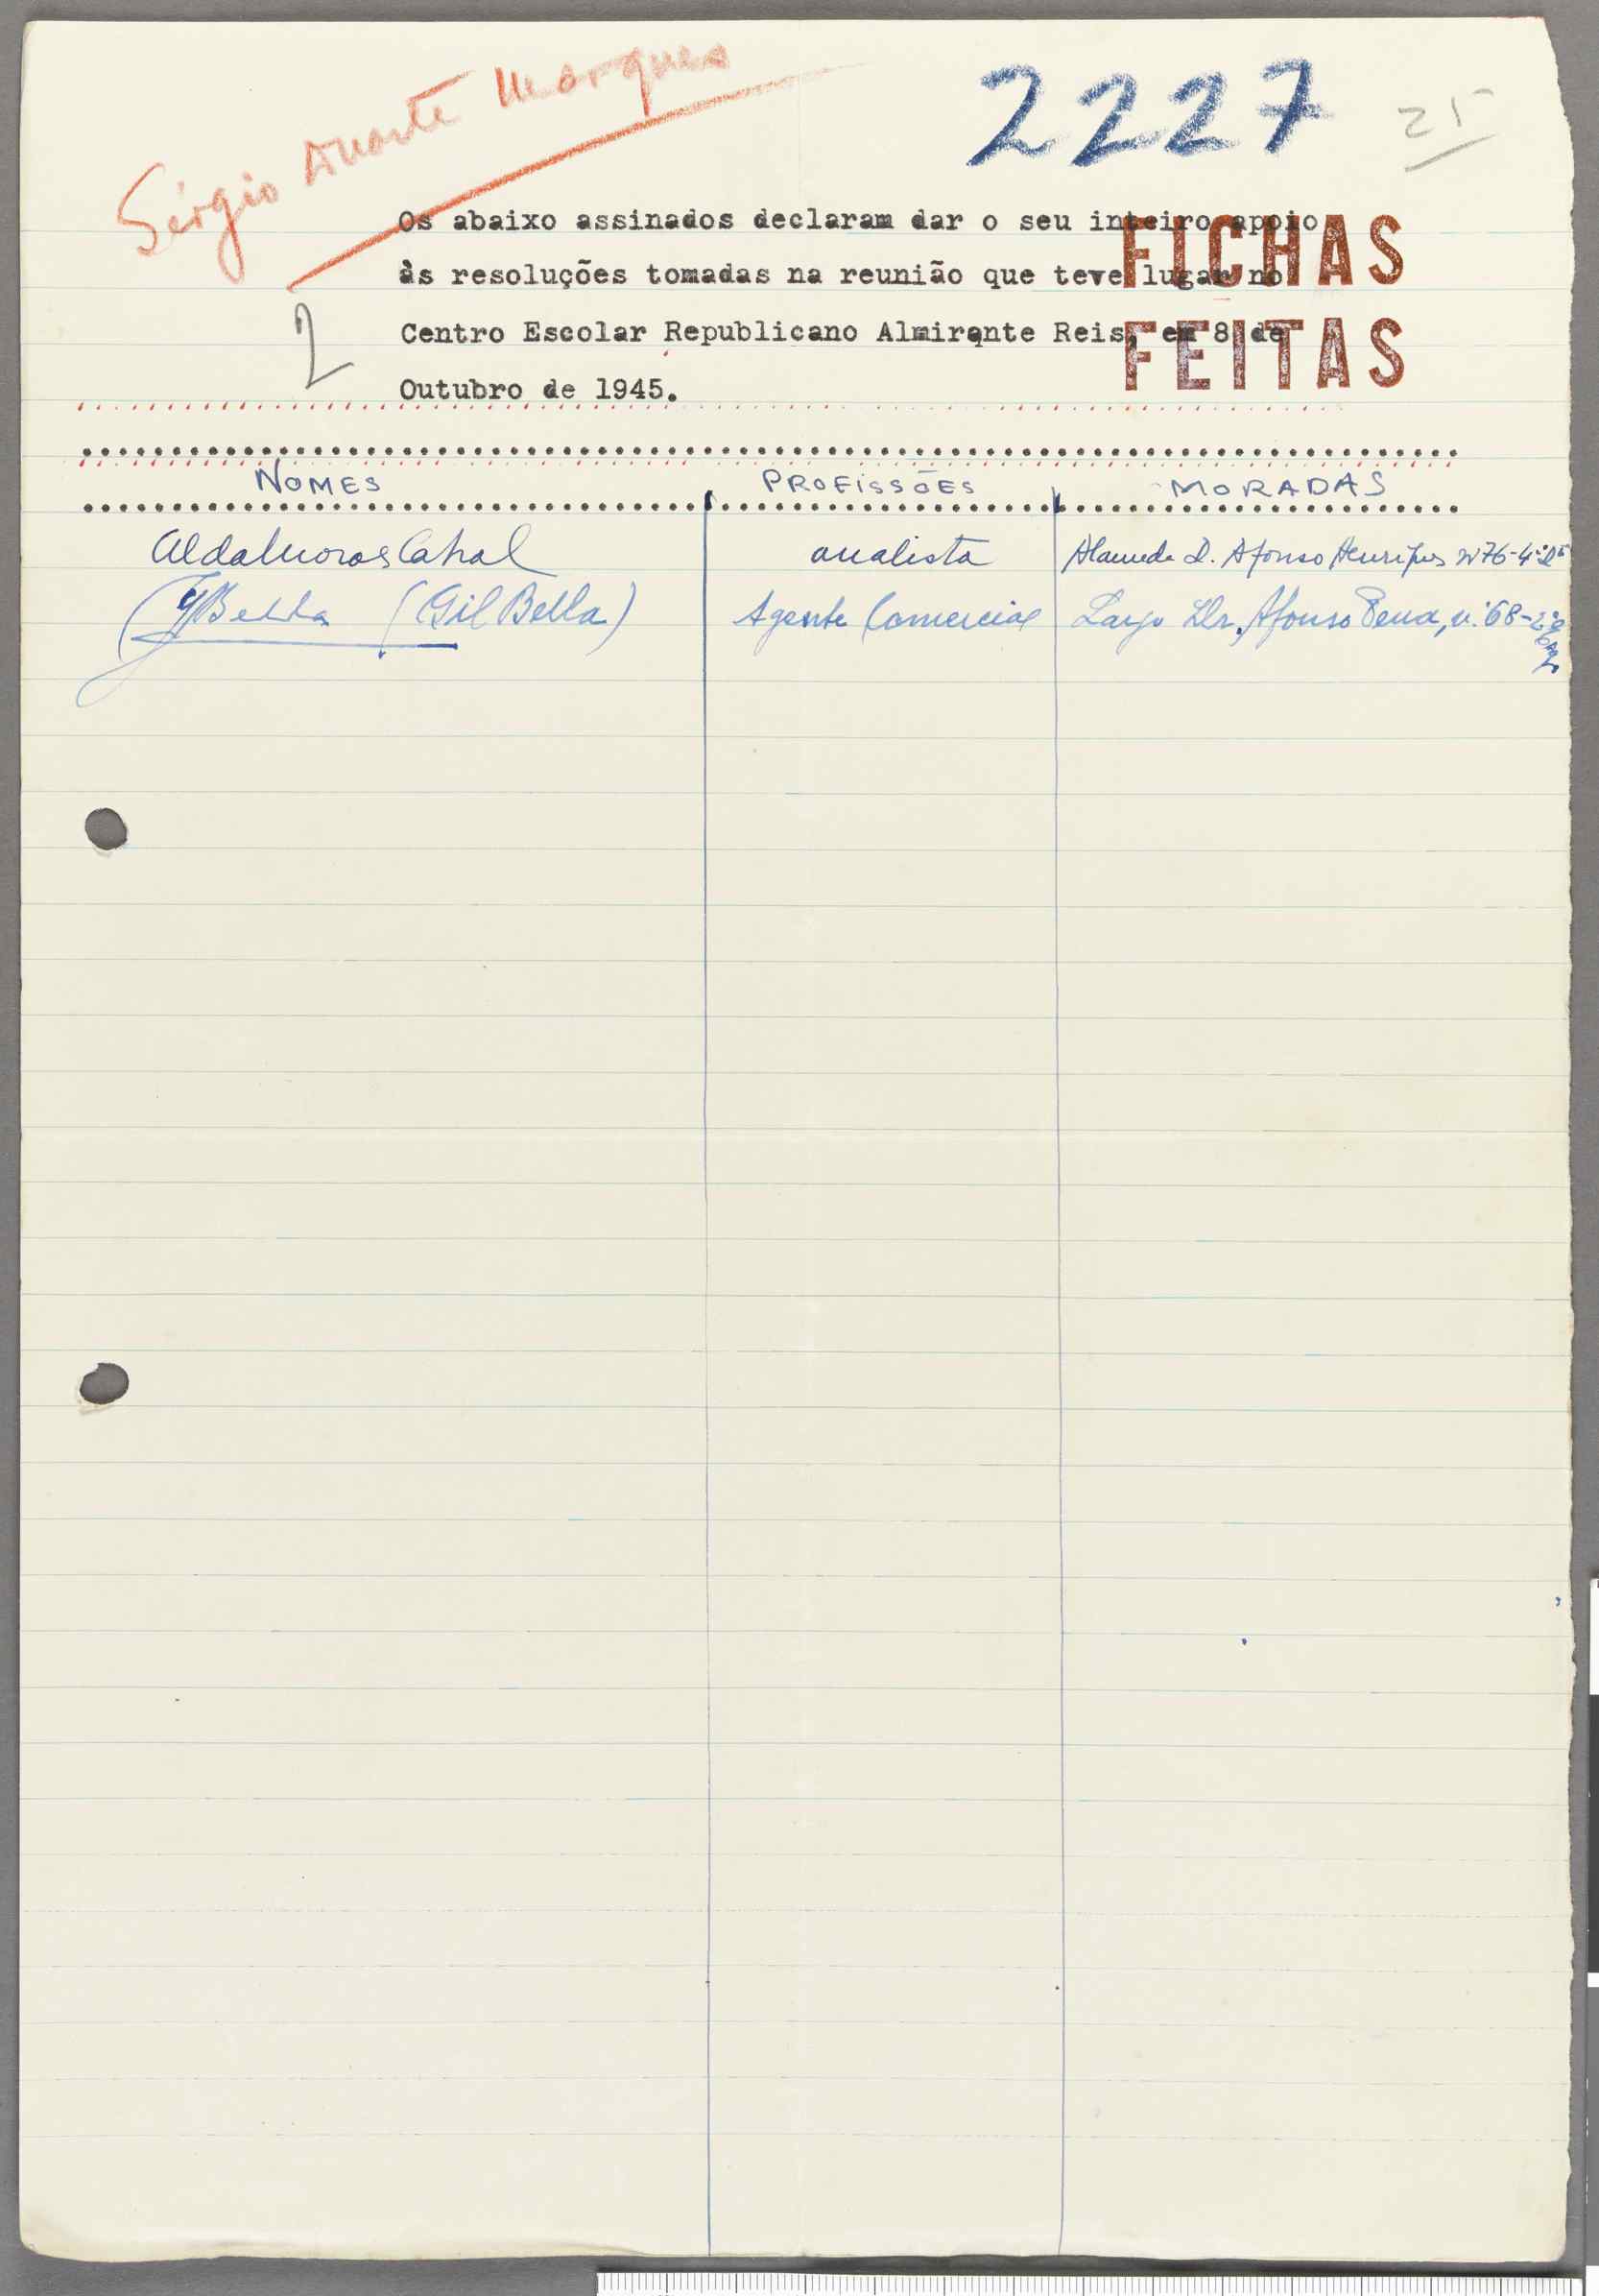 Sérgio Duarte Marques
2227
25
Os abaixo assinados declaram dar o seu inteiro apoio
às resoluções tomadas na reunião que teve lugar no
Centro Escolar Republicano Almirante Reis, em 8 de
Outubro de 1945.
2
FICHAS
FEITAS
NOMES PROFISSÕES MORADAS
Alda Moraes Cabral analista Alameda D. Afonso Henriques nº 76-4º Dt
(Gil Bella) Agente Comercial Largo Dr. Afonso Pena, n. 68-2º